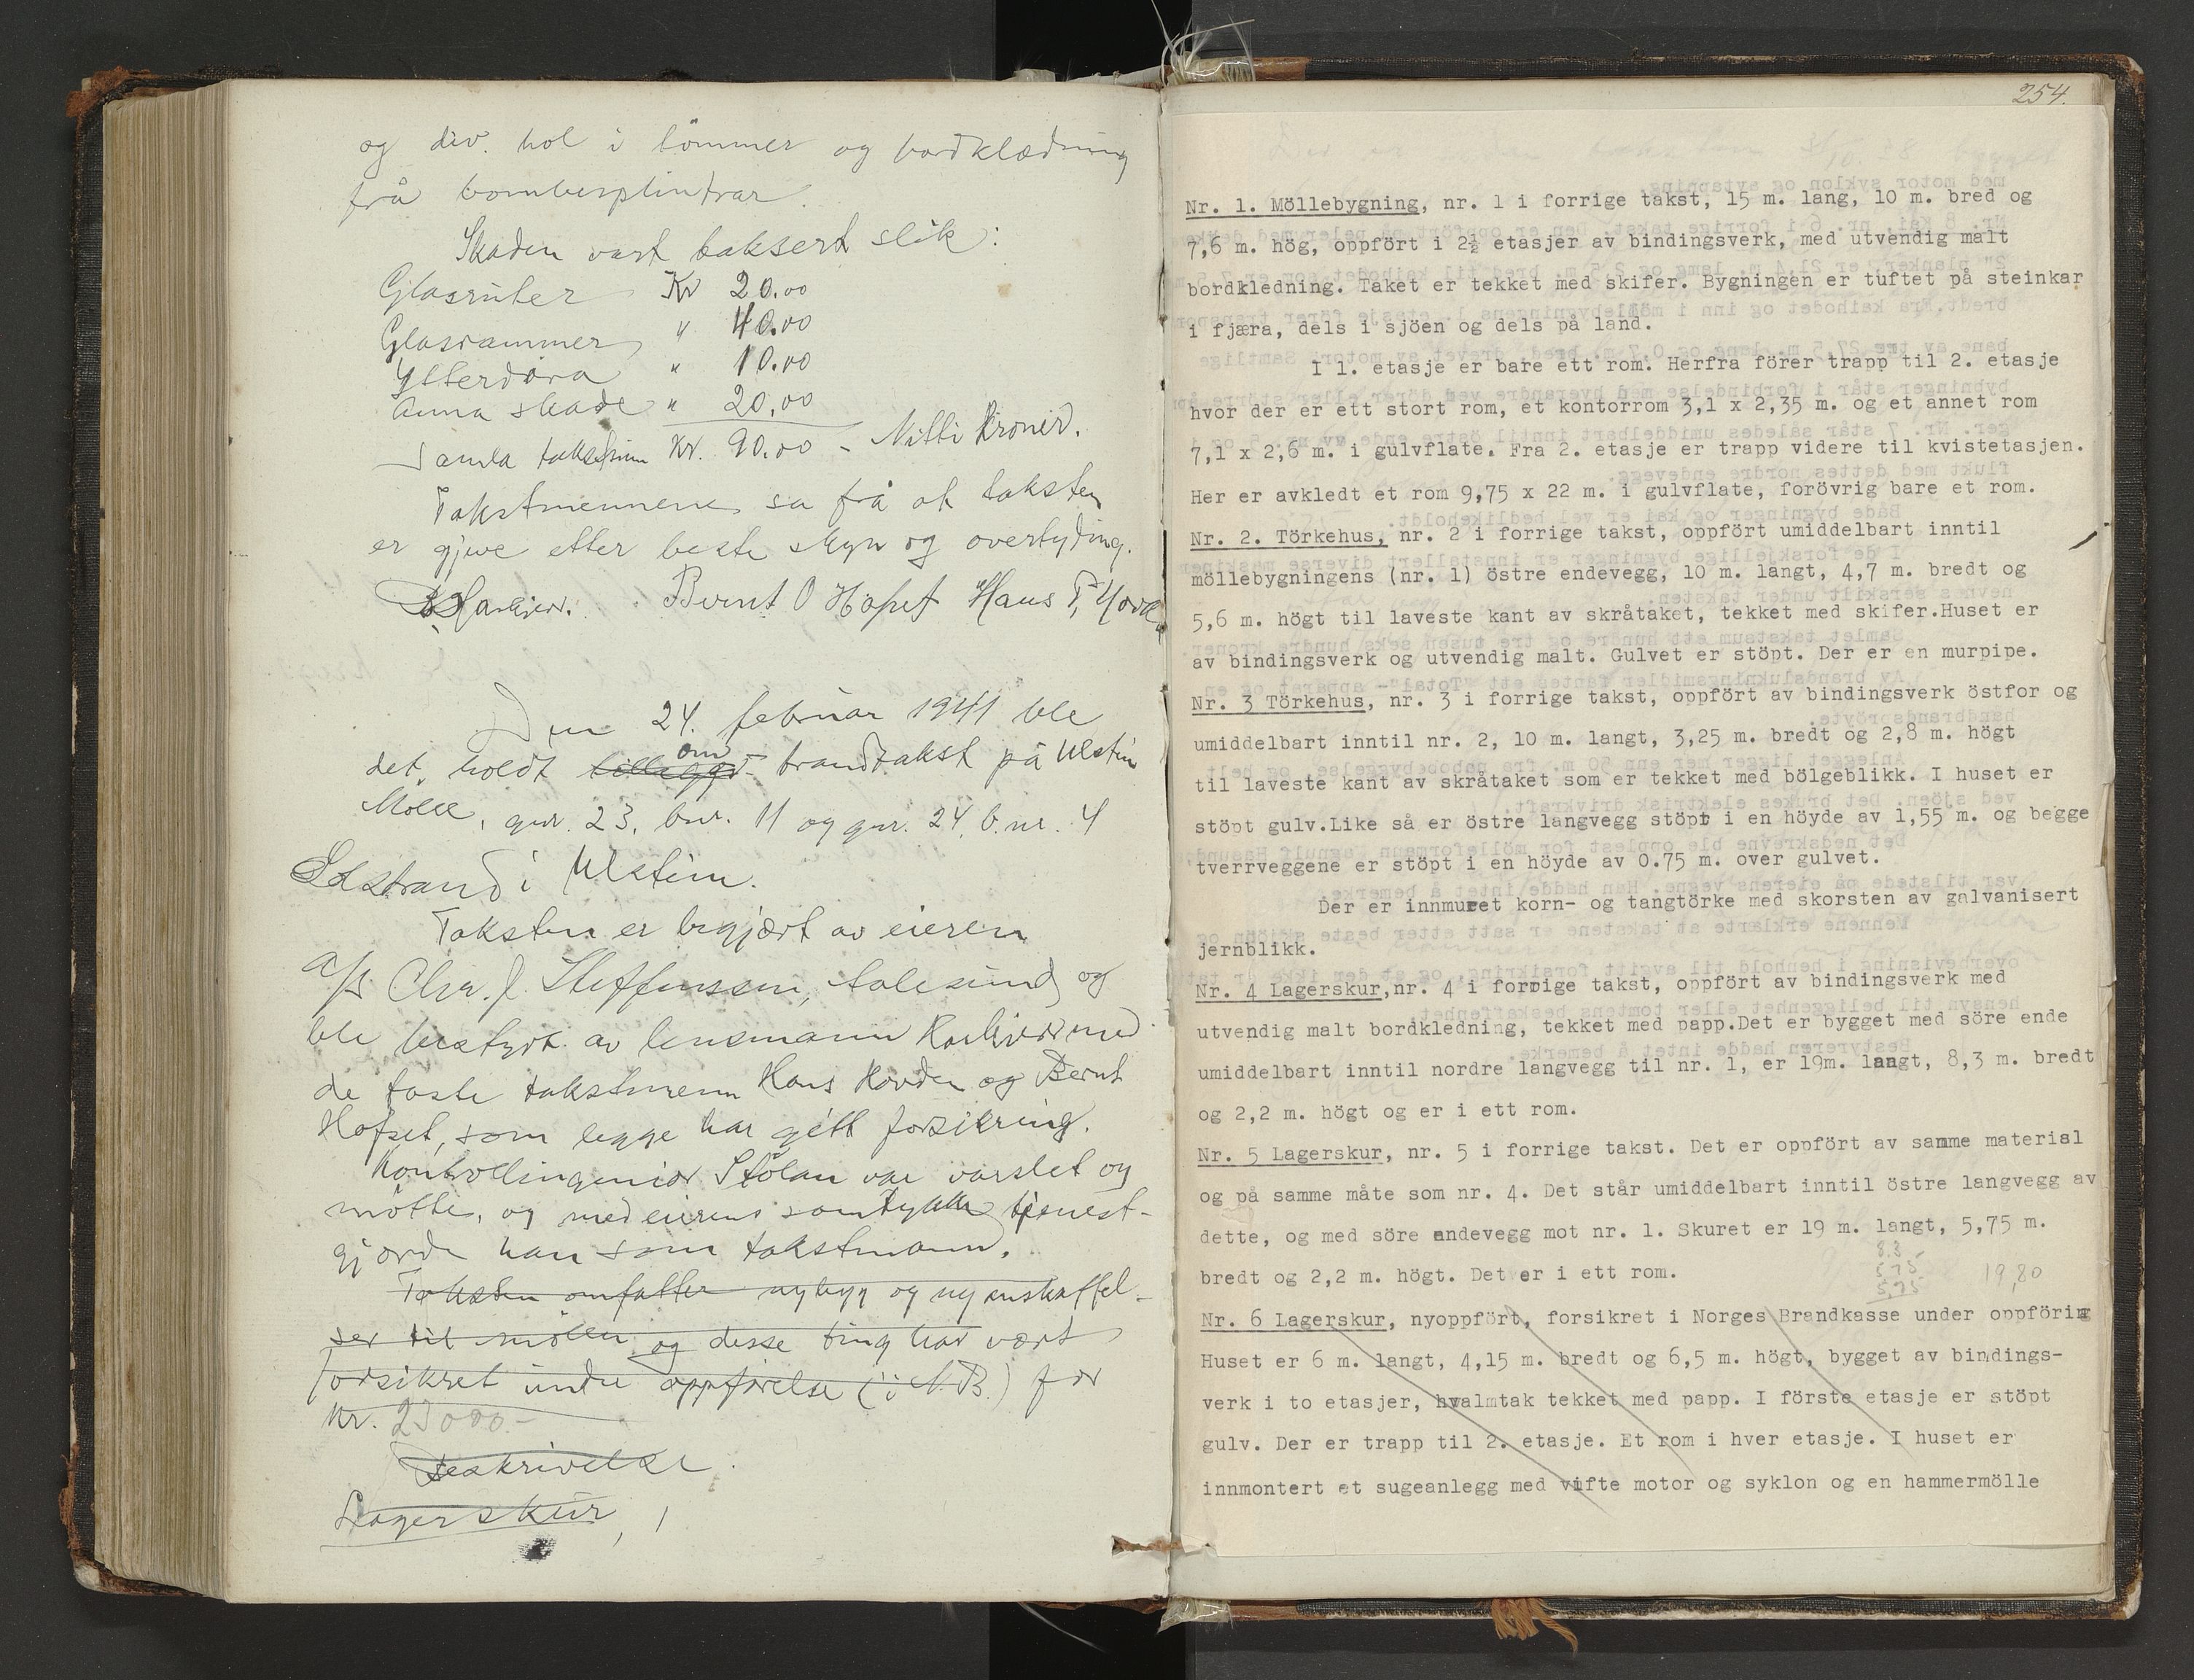 og div. hol i tömmer og bordklædning
frå bombesplintrar.
Skaden vart taksert slik:
Glasruter Kr 20.00
Glasrammer " 40.00
Ytterdöra " 10.00
Anna skade " 20.00
Samla takstsum Kr. 90.00 - Nitti kroner.
Takstmennene sa frå at taksten
er gjeve etter beste skyn og overtyding.
Bernt O Hofset Hans P. Hovde
Den 24. februar 1941 ble
det holdt tilleggs- om brandtakst på Ulstein
Mölle, gnr. 23, bnr. 11 og gnr. 24, b.nr. 4
i Ulstein.
Taksten er begjært av eieren
A/S Chr. J. Steffensen, Aalesund, og
ble bestyrt av lensmann med
de faste takstmenn Hans Hovden og Bernt
Hofset, som begge har gitt forsikring.
Kontrollingeniör Stölan var varslet og
mötte, og med eierens samtykke tjenest-
gjorde han som takstmann.
Taksten omfatter nybygg og nyanskaffel-
ser til möllen og disse ting har vært
forsikret under oppförelse (i N.B.) for
kr. 23000.-
Beskrivelse.
Lagerskur, 1
254.
Nr. 1. Möllebygning, nr. 1 i forrige takst, 15 m. lang, 10 m. bred og
7,6 m. hög, oppfört i 2½ etasjer av bindingsverk, med utvendig malt
bordkledning. Taket er tekket med skifer. Bygningen er tuftet på steinkar
i fjæra, dels i sjöen og dels på land.
I 1. etasje er bare ett rom. Herfra förer trapp til 2. etasje
hvor der er ett stort rom, et kontorrom 3,1 x 2,35 m. og et annet rom
7,1 x 2,6 m. i gulvflate. Fra 2. etasje er trapp videre til kvistetasjen.
Her er avkledt et rom 9,75 x 22 m. i gulvflate, forövrig bare et rom.
Nr. 2. Törkehus, nr. 2 i forrige takst, oppfört umiddelbart inntil
möllebygningens (nr. 1) östre endevegg, 10 m. langt, 4,7 m. bredt og
5,6 m. högt til laveste kant av skråtaket, tekket med skifer.Huset er
av bindingsverk og utvendig malt. Gulvet er stöpt. Der er en murpipe.
Nr. 3 Törkehus, nr. 3 i forrige takst, oppfört av bindingsverk östfor og
umiddelbart inntil nr. 2, 10 m. langt, 3,25 m. bredt og 2,8 m. högt
til laveste kant av skråtaket som er tekket med bölgeblikk. I huset er
stöpt gulv.Like så er östre langvegg stöpt i en höyde av 1,55 m. og begge
tverrveggene er stöpt i en höyde av 0.75 m. over gulvet.
Der er innmuret korn- og tangtörke med skorsten av galvanisert
jernblikk.
Nr. 4 Lagerskur,nr. 4 i forrige takst, oppfört av bindingsverk med
utvendig malt bordkledning, tekket med papp.Det er bygget med söre ende
umiddelbart inntil nordre langvegg til nr. 1, er 19m. langt, 8,3 m. bredt
og 2,2 m. högt og er i ett rom.
Nr. 5 Lagerskur, nr. 5 i forrige takst. Det er oppfört av samme materisl
og på samme måte som nr. 4. Det står umiddelbart inntil östre langvegg av
dette, og med söre endevegg mot nr. 1. Skuret er 19 m. langt, 5,75 m.
bredt og 2,2 m. högt. Det er i ett rom.
8.3
5.75
5.75
19,80
Nr. 6 Lagerskur, nyoppfört, forsikret i Norges Brandkasse under oppföring
Huset er 6 m. langt, 4,15 m. bredt og 6,5 m. högt, bygget av bindings-
verk i to etasjer, hvalmtak tekket med papp. I förste etasje er stöpt
gulv. Der er trapp til 2. etasje. Et rom i hver etasje. I huset er
innmontert et sugeanlegg med vifte motor og syklon og en hammermölle